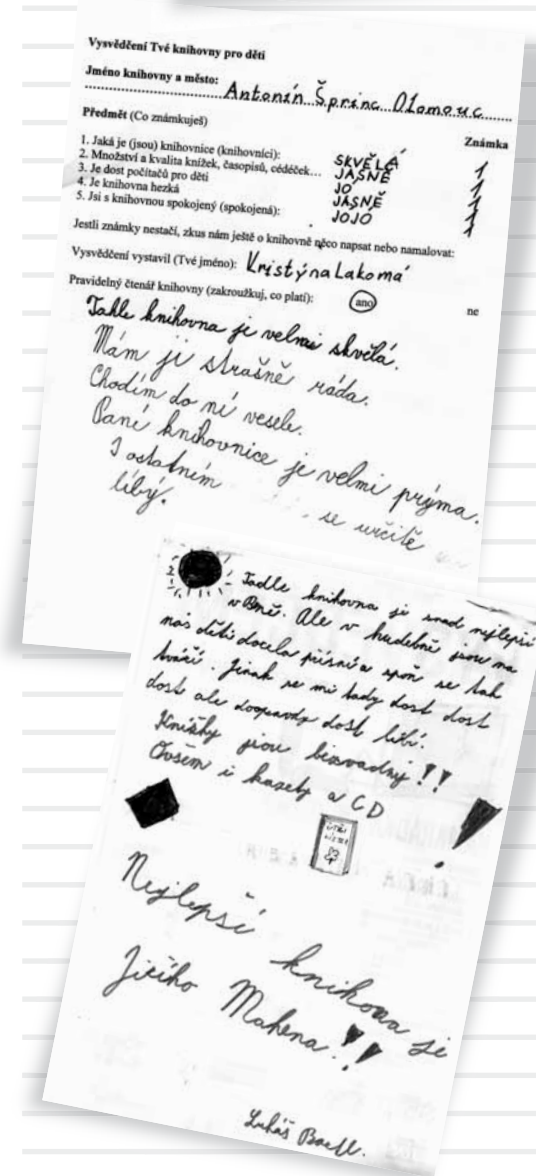 Vysvědčení Tvé knihovny pro děti
Jméno knihovny a město: Antonín Šprinc Olomouc
Předmět (Co známkuješ) Známka
1. Jaká je (jsou) knihovnice (knihovníci): SKVĚLÁ 1
2. Množství a kvalita knížek, časopisů, cédéček... JASNĚ 1
3. Je dost počítačů pro děti JO 1
4. Je knihovna hezká JASNĚ 1
5. Jsi s knihovnou spokojený (spokojená): JOJO 1
Jestli známky nestačí, zkus nám ještě o knihovně něco napsat nebo namalovat:
Vysvědčení vystavil (Tvé jméno): Kristýna Lakomá
Pravidelný čtenář knihovny (zakroužkuj, co platí): ano ne
Takle knihovna je velmi skvělá.
Mám ji strašně ráda.
Chodím do ní vesele.
Paní knihovnice je velmi prýma.
I ostatním se určitě
líbý.
Tadle knihovna ji snad nejlepší
v Brně. Ale v hudebně jsou na
nás děti docela přísní a spoň se tak
tváří. Jinak se mi tady dost dost
dost ale doopravdy dost líbí.
Knížky jsou bizvadný!!
Ovšem i kazety a CD !
Nejlepší knihovna je
Jiřího Mahena!!
Lukáš